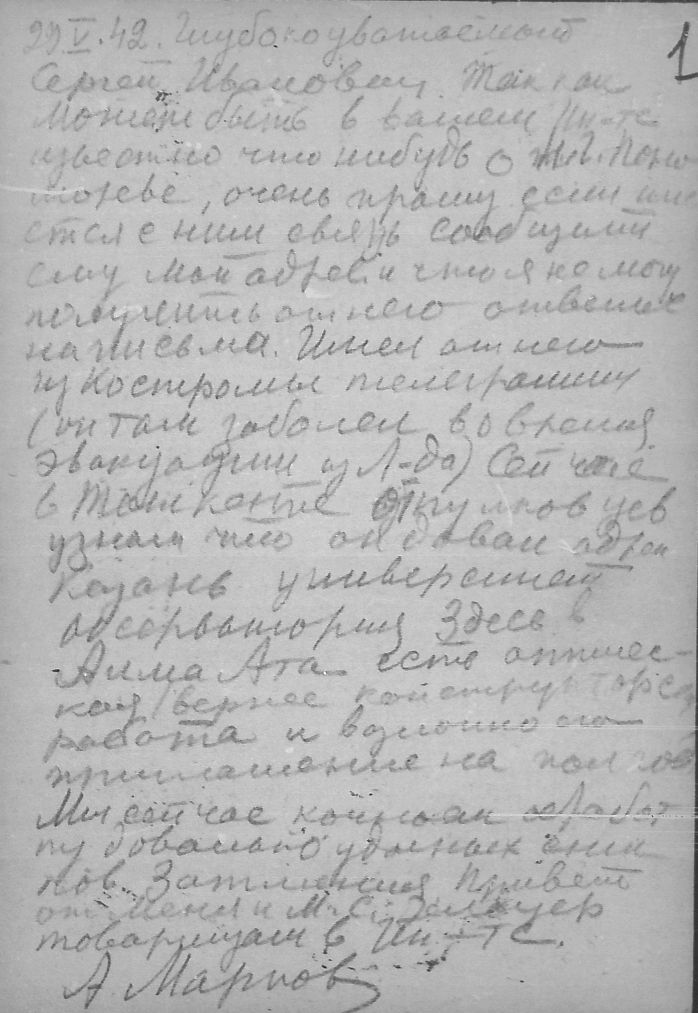 29 V. 42. Глубокоуважаемый
1
Сергей Иванович. Так как
может быть в вашем Ин-те
известно что нибудь о
очень прошу если име
ется с ним связь сообщить
ему мой адрес и что я не могу
получить от него ответы
на письма. Имел от него
из Костромы телеграмму
(он там заболел во время
эвакуации из Л-да) Сейчас
в Ташкенте от пулковцев
узнал что он давал адрес
Казань университет
обсерватория Здесь в
Алма Ата есть оптичес-
кая, вернее конструкторск
работа и возможно его
приглашение на
Мы сейчас кончаем обработ
ку довольно удачных сним
ков Затмения Привет
от меня и М. С.
товарищам в Ин-те.
А. Марков